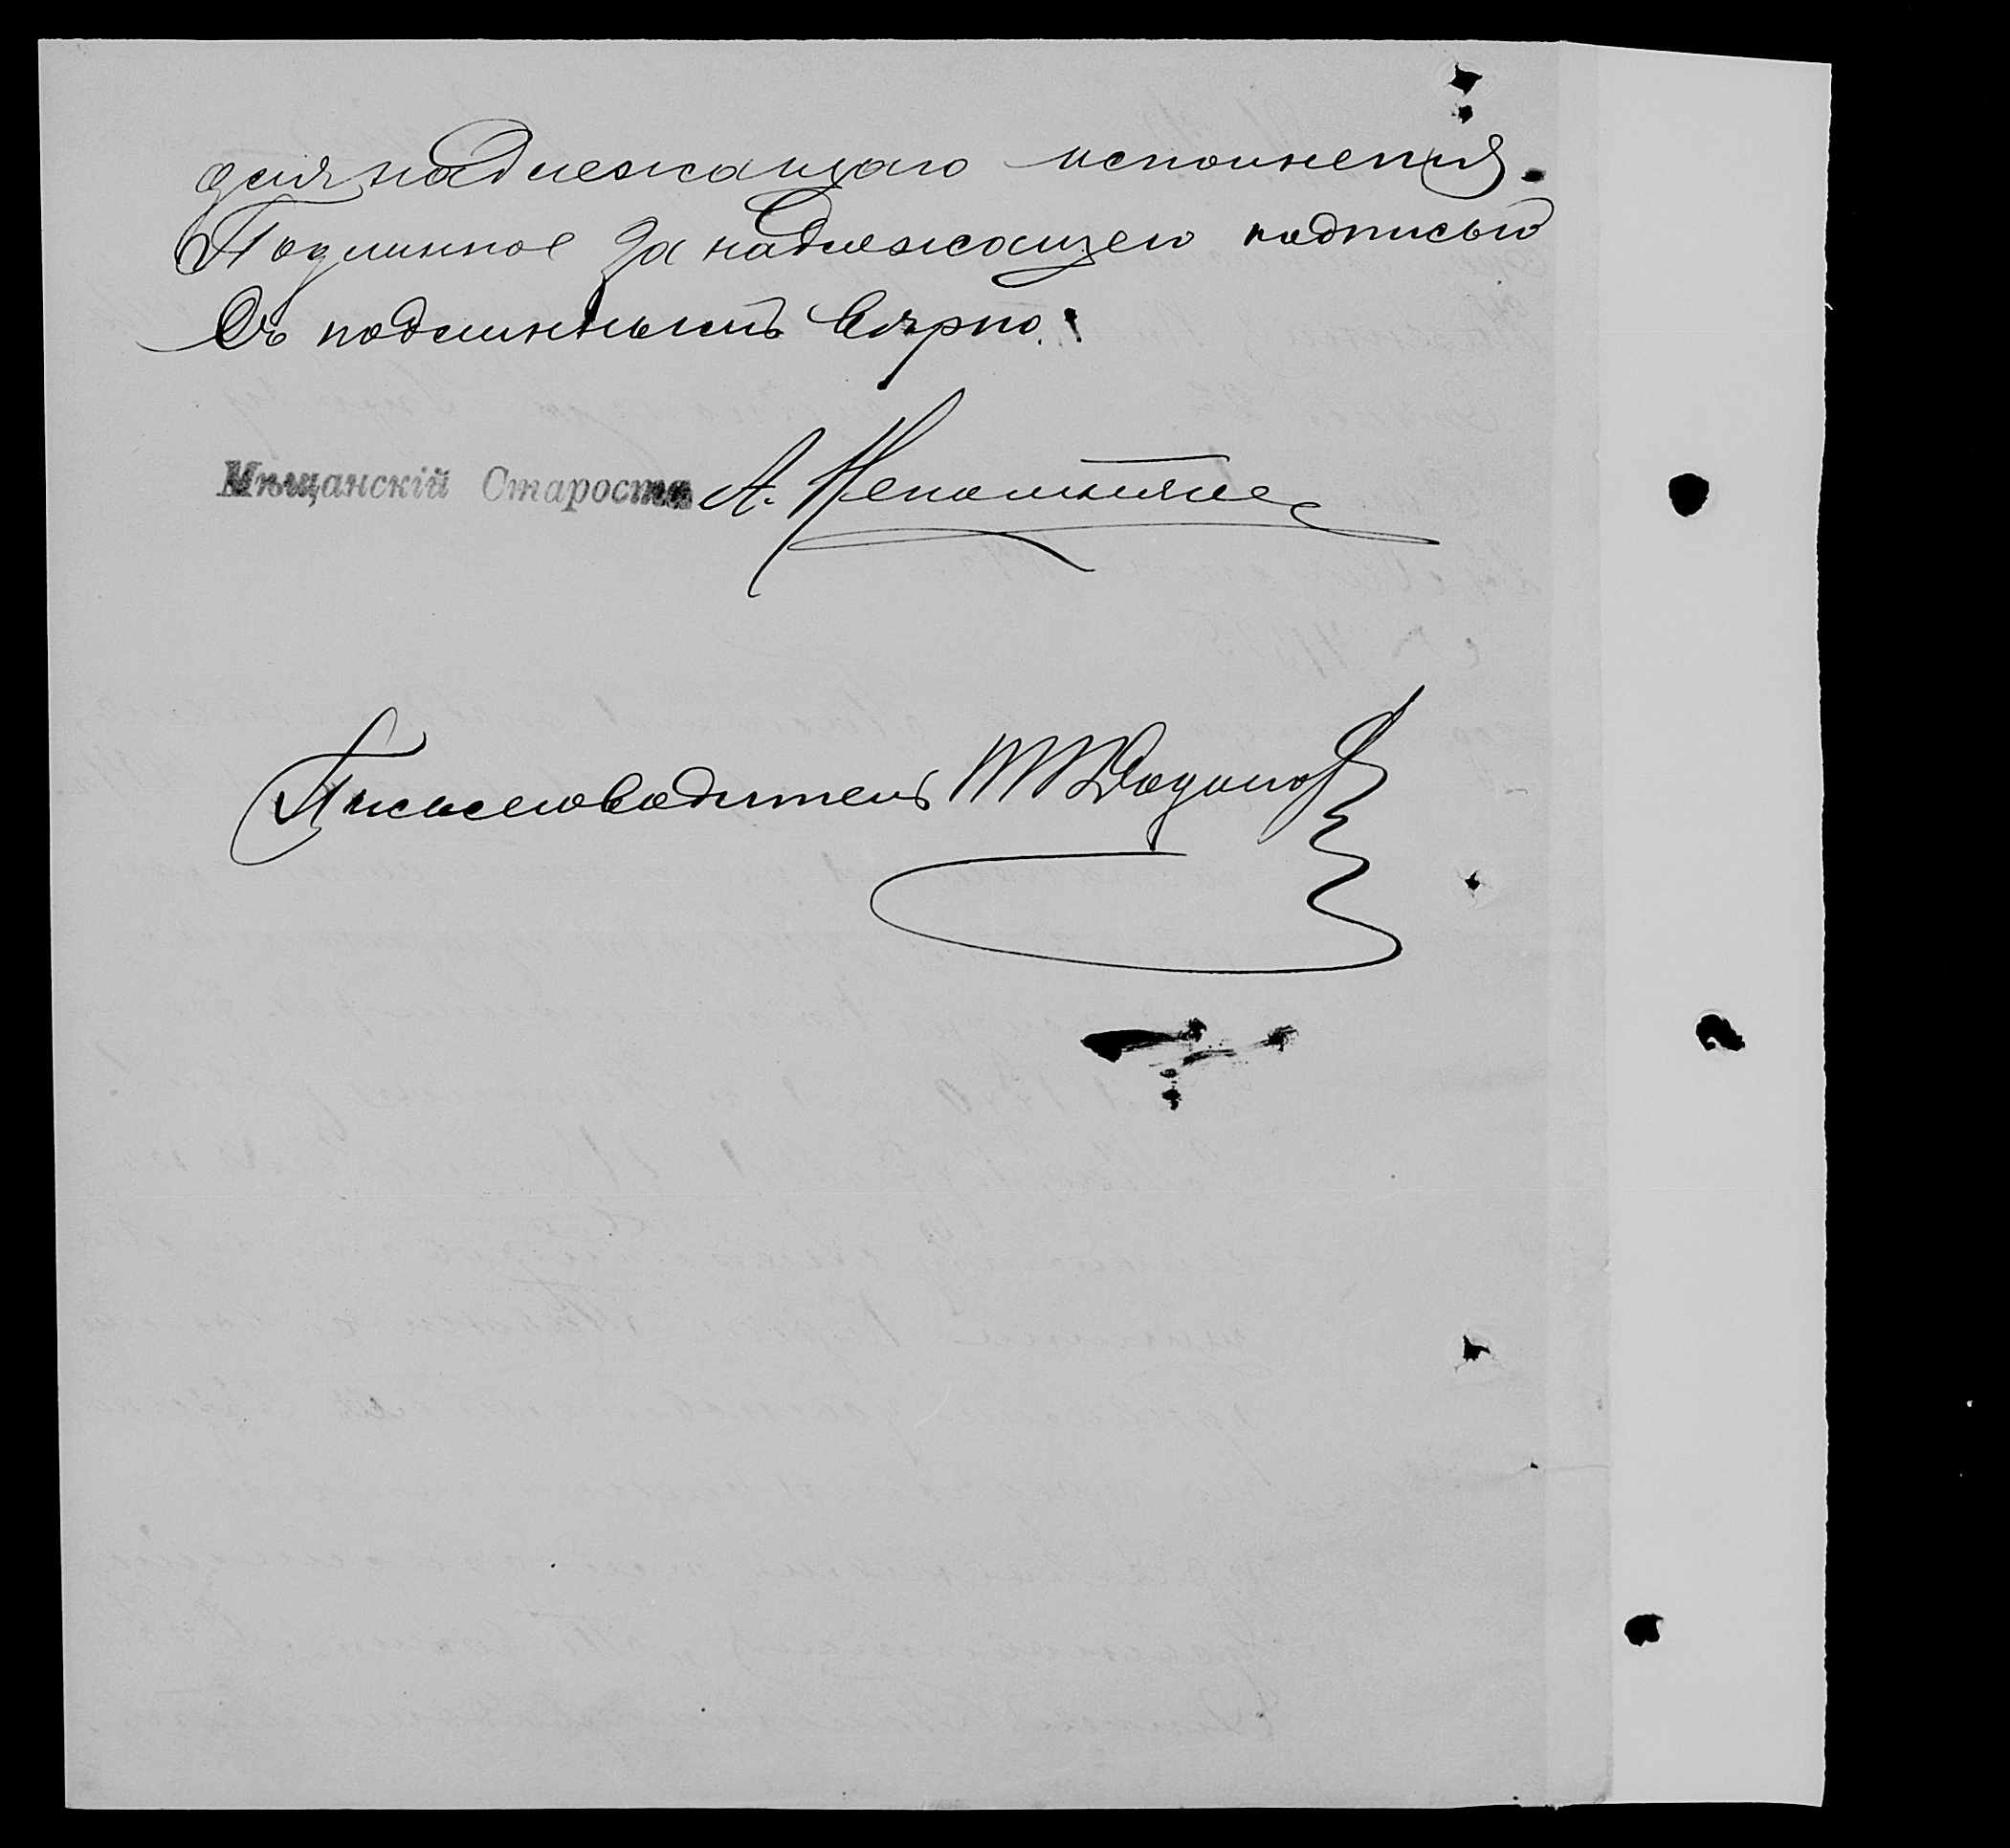 для надлежащаго исполненія.
Подлинное за надлежащею подписью
Съ подлиннымъ вѣрно:
Мѣщанскій Староста А.
Письмоводитель